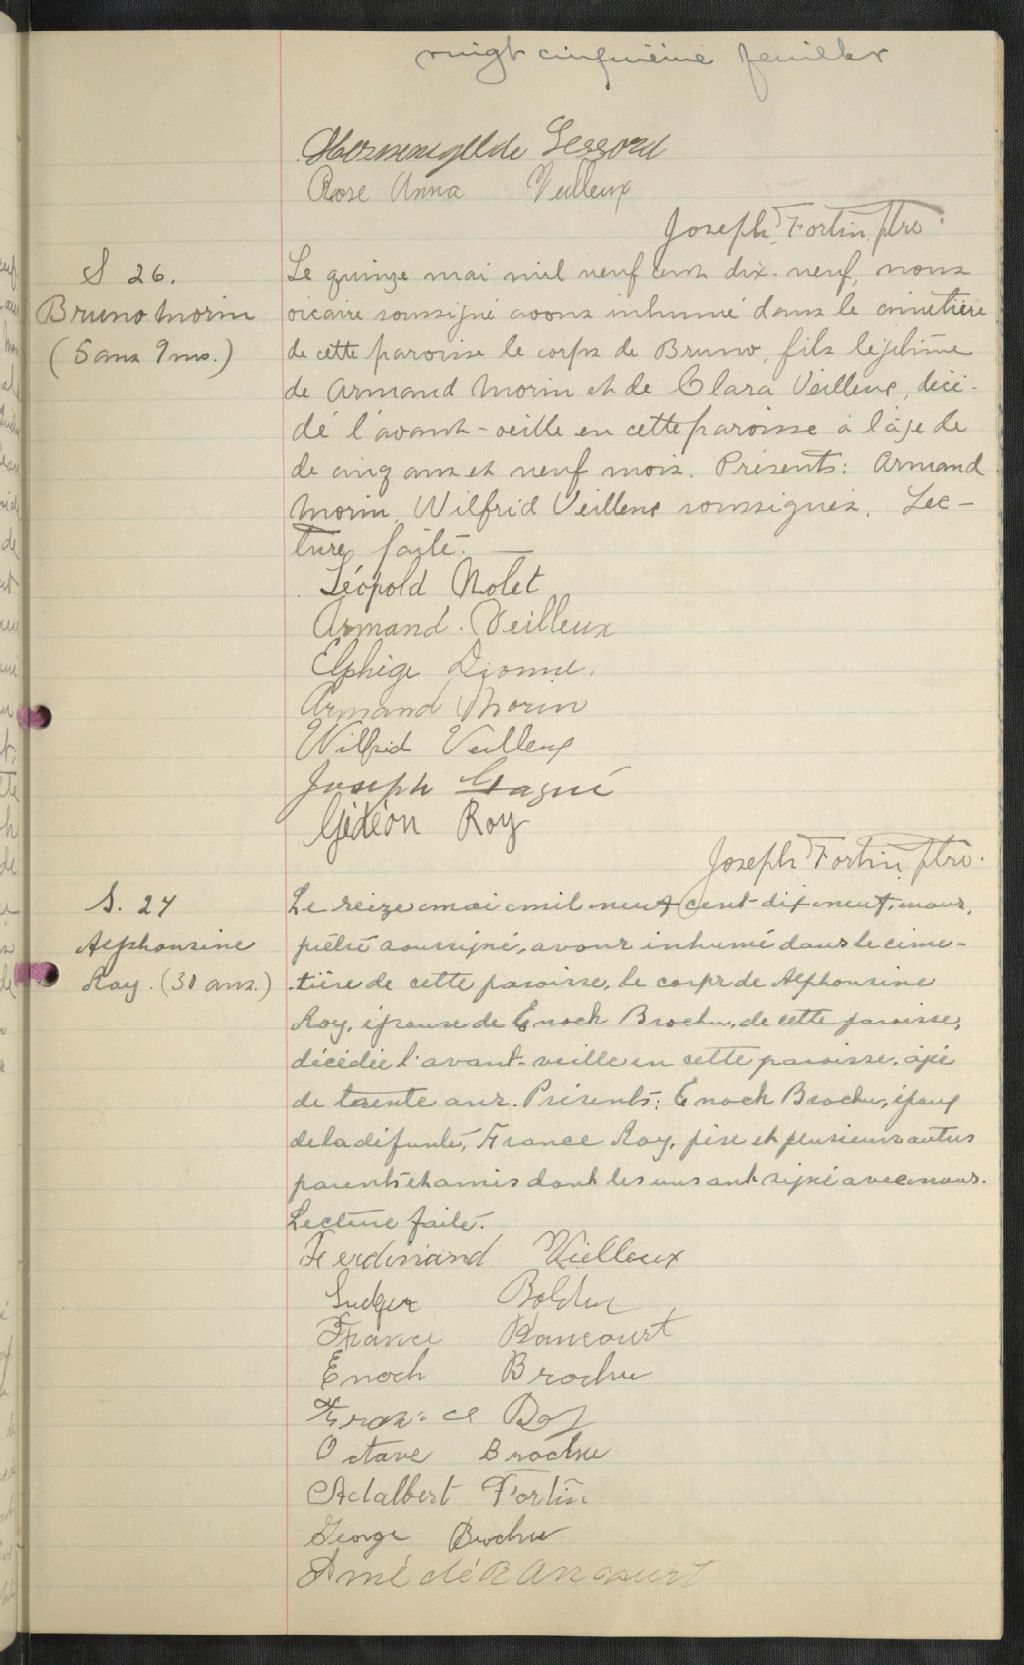 vingt cinquième feuillet
Hermenegilde Lessard
Rose Anna Veilleux
Joseph Fortin ptre
S 26.
Bruno Morin
(5 ans 9 mo.)
Le quinze mai mil neuf cent dix-neuf, nous
vicaire soussigné avons inhumé dans le cimetière
de cette paroisse le corps de Bruno, fils légitime
de Armand Morin et de Clara Veilleux, décé-
dé l'avant-veille en cette paroisse à l'âge de
de cinq ans et neuf mois. Présents: Armand
Morin, Wilfrid Veilleux soussignés. Lec-
ture faite.
Léopold Nolet
Armand Veilleux
Elphège Dionne.
Armand Morin
Wilfrid Veilleux
Joseph Gagné
Gédéon Roy
Joseph Fortin ptre.
S. 27
Alphonsine
Roy. (30 ans.)
Le seize mai mil neuf cent dix neuf, nous,
prêtre soussigné, avons inhumé dans le cime-
tière de cette paroisse, le corps de Alphonsine
Roy, épouse de Enoch Brochu, de cette paroisse,
décédée l'avant-veille en cette paroisse, âgée
de trente ans. Présents: Enoch Brochu, époux
de la défunte, France Roy, père et plusieurs autres
parents et amis dont les uns ont signé avec nous.
Lecture faite.
Ferdinand Vielleux
Ludger Bolduc
France Rancourt
Enoch Brochu
France Roy
Octave Brochu
Adalbert Fortin
George Brochu
Amédé Rancourt